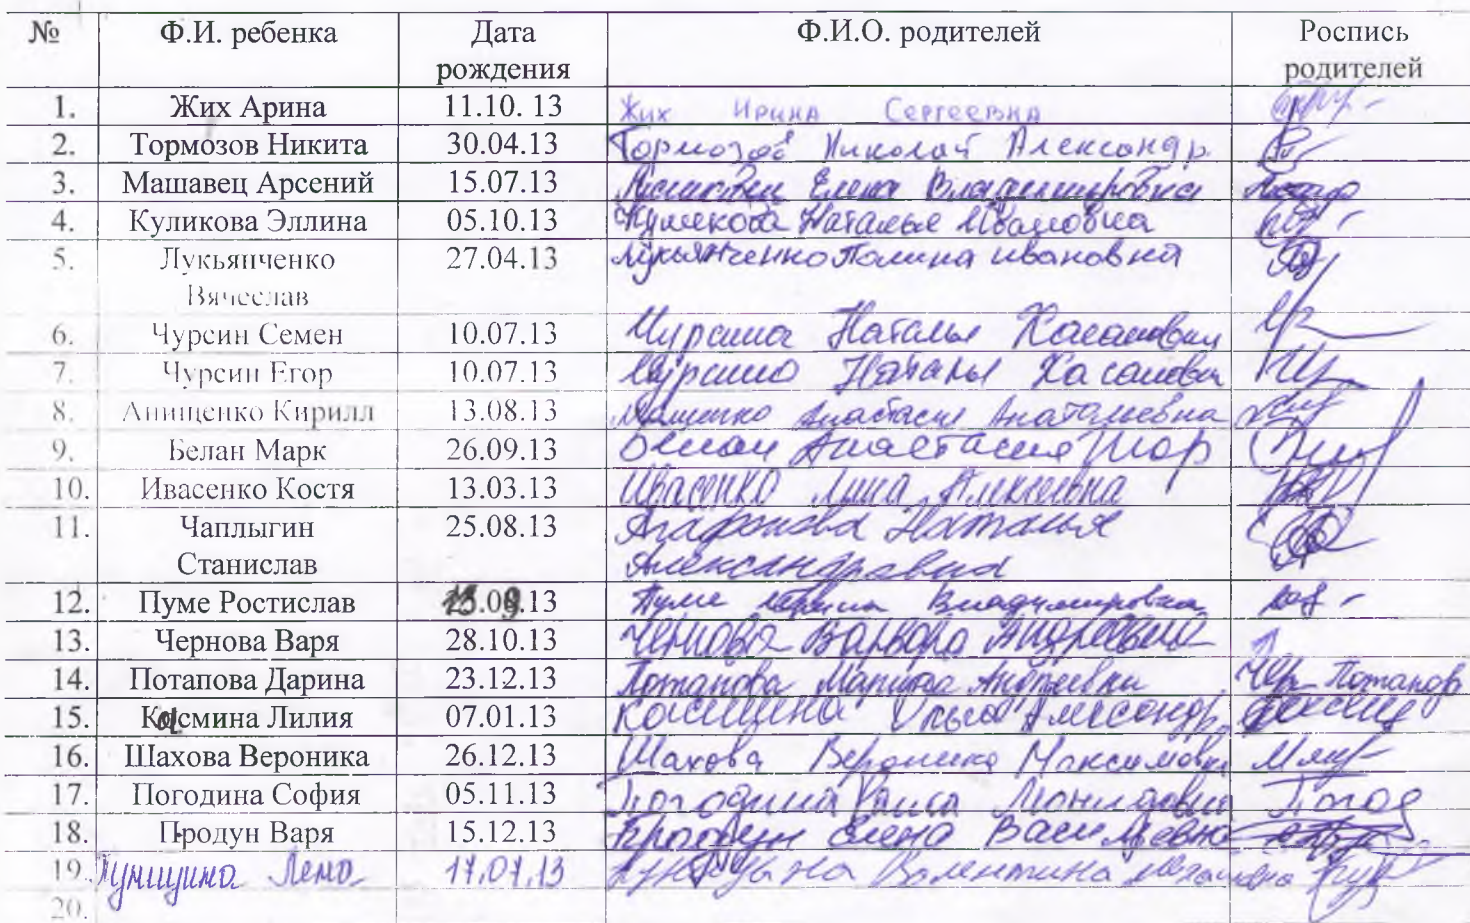 № Ф.И. ребенка Дата рождения Ф.И.О. родителей Роспись родителей
1. Жих Арина 11.10. 13 Жих Ирина Сергеевна
2. Тормозов Никита 30.04.13 Тормозов Николай Александр.
3. Машавец Арсений 15.07.13 Машавец Елена Владимировна
4. Куликова Эллина 05.10.13 Куликова Наталья Ивановна
5. Лукьянченко 27.04.13 Лукьянченко Полина ивановна
Вячеслав
6. Чурсин Семен 10.07.13 Чурсина Наталья Хасановна
7. Чурсин Егор 10.07.13 Чурсина Наталья Хасановн
8. Анищенко Кирилл 13.08.13 Анастасия Анатольевна
9. Белан Марк 26.09.13 Белан Анастасия Игор
10. Ивасенко Костя 13.03.13 Ивасенко Алексеевна
11. Чаплыгин 25.08.13 Агафонова Наталья
Станислав Александравна
12. Пуме Ростислав .13 Пуме Владимировна
13. Чернова Варя 28.10.13 Чернова Варвара Андреевна
14. Потапова Дарина 23.12.13 Потапова Марина Андреевна Потапов
15. Касмина Лилия 07.01.13 Касмина Ольга Александр.
16. Шахова Вероника 26.12.13 Шахова Вероника Максимовна
17. Погодина София 05.11.13 Погодина Раиса Погод
18. Продун Варя 15.12.13 Продун Елена Васильевна
19. Лена 17.07.13 Валентина
20.